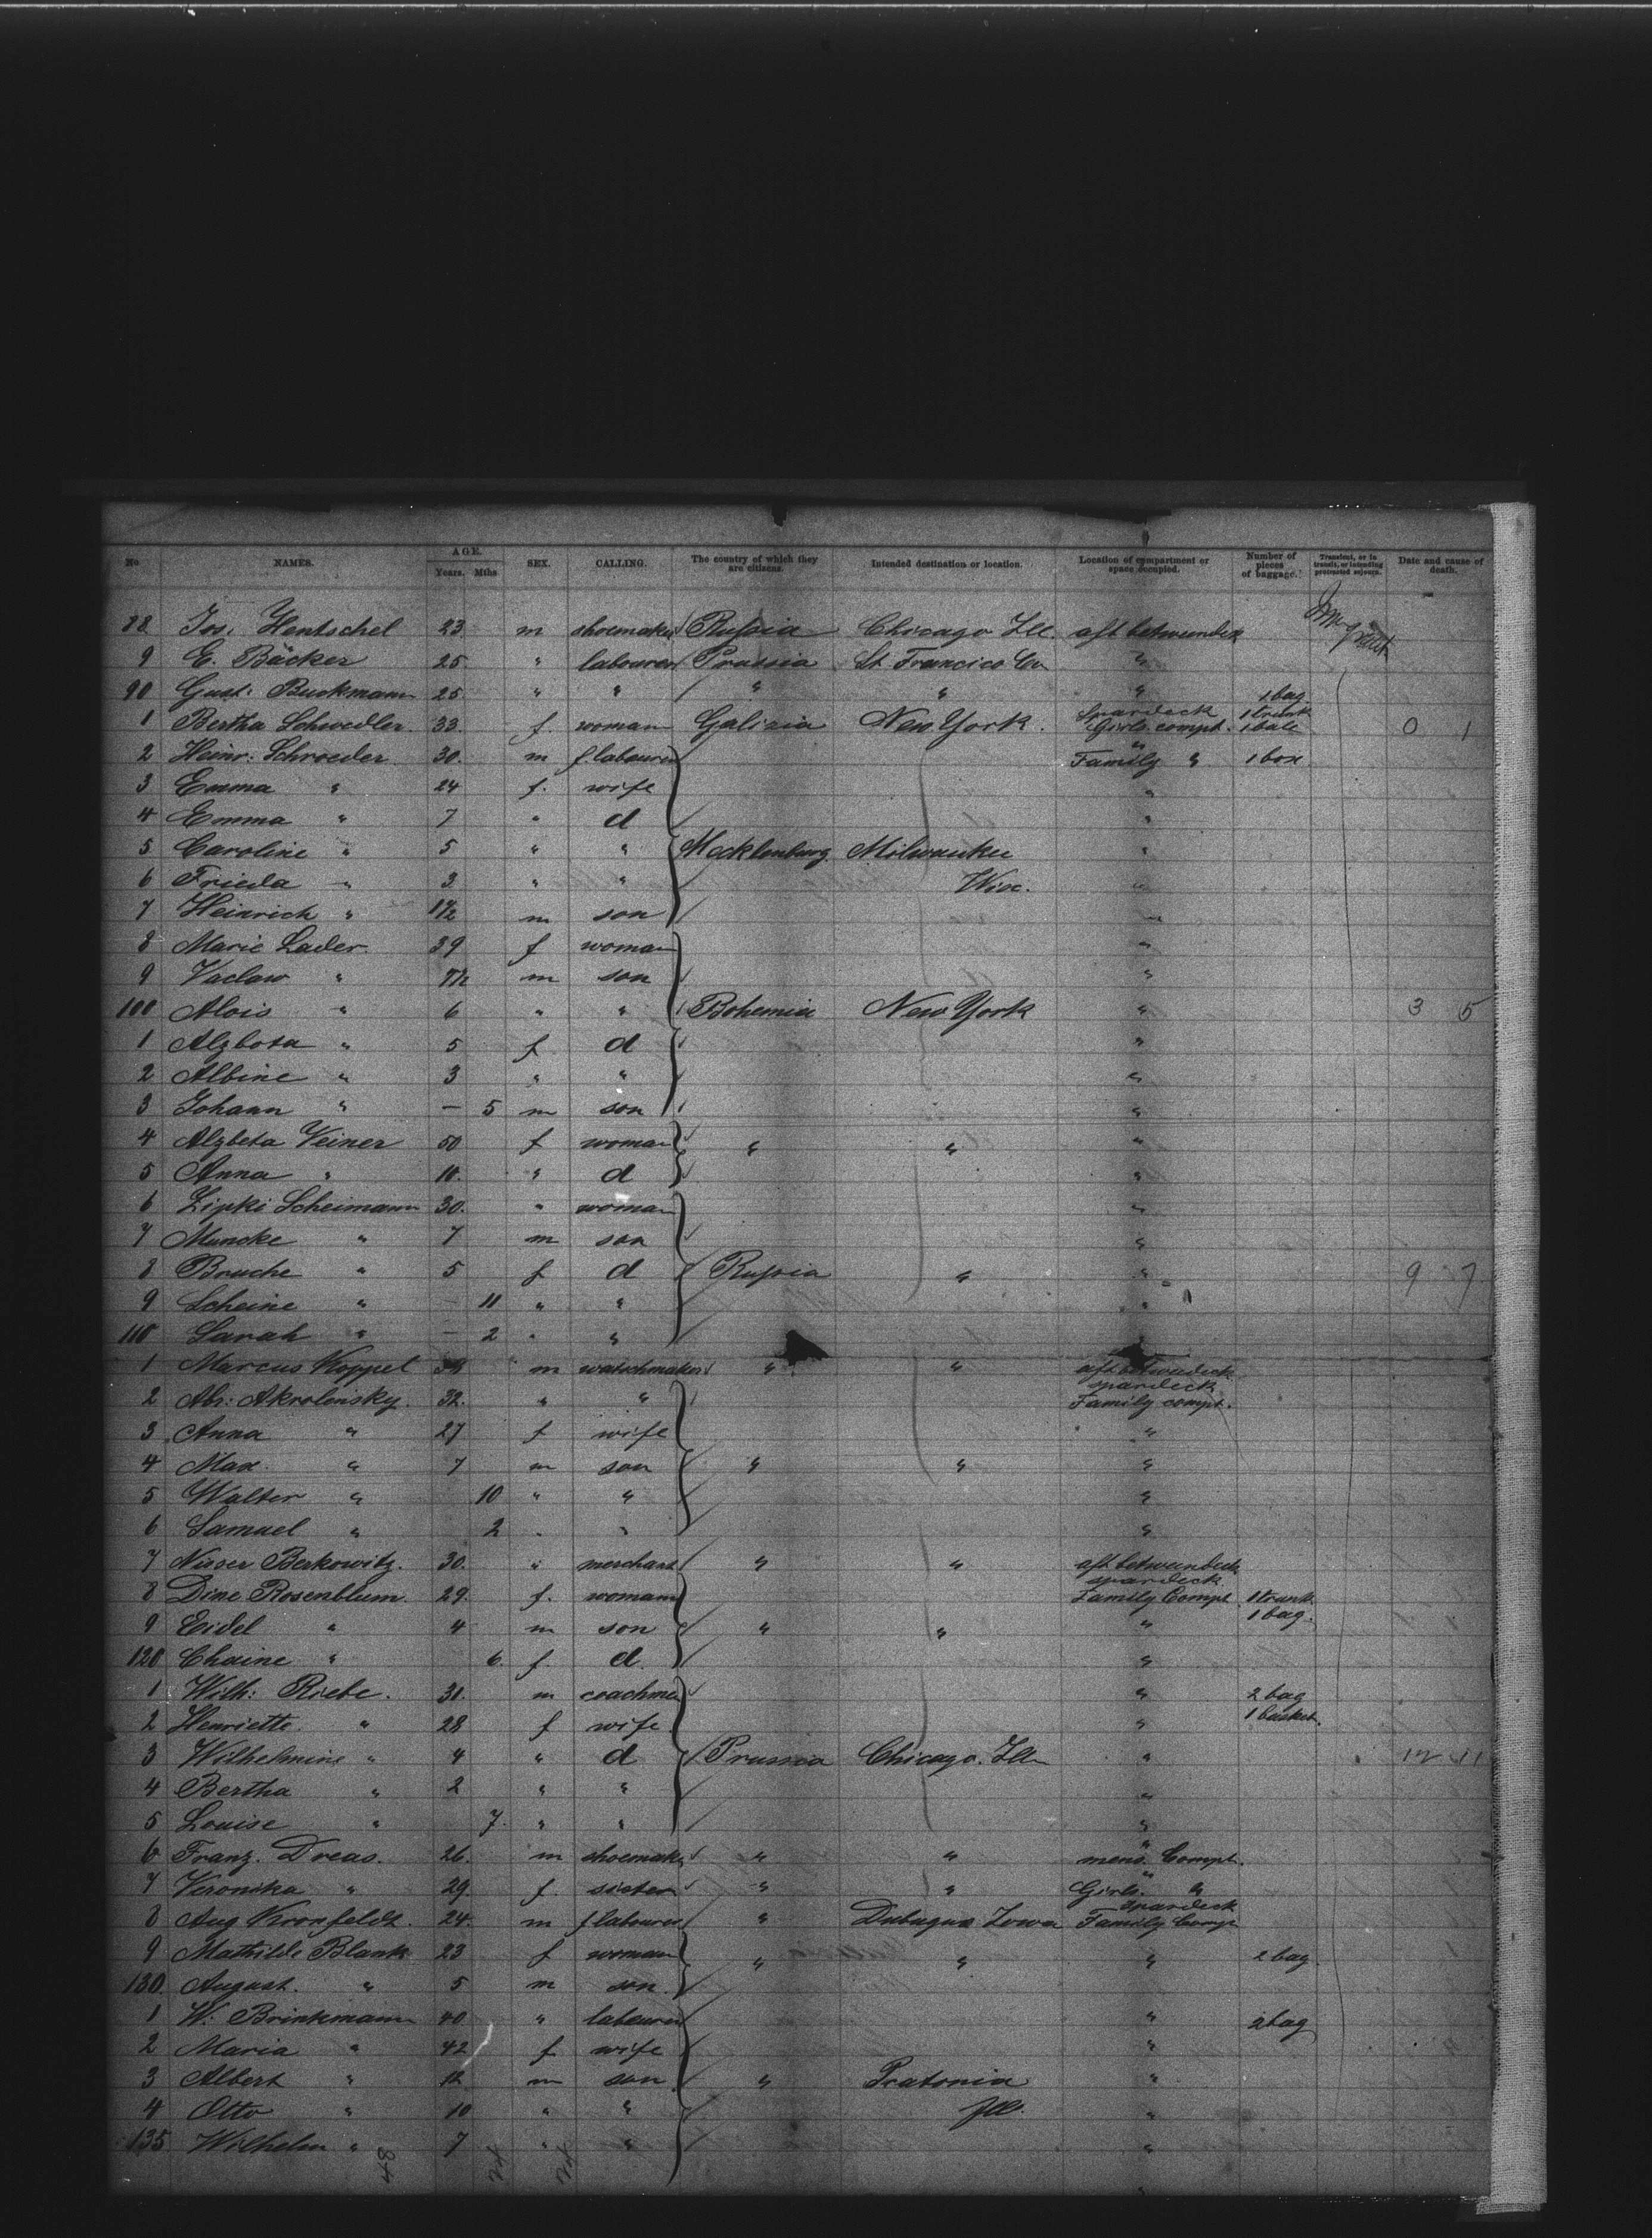 No NAMES. AGE. Years. Mths SEX. CALLING. The country of which they are citizens. Intended destination or location. Location of compartment or space occupied. Number of pieces of baggage. Transient, or in transit, or intending protracted sojourn. Date and cause of death.
88 Jos. Hentschel 23 m shoemaker Russia Chicago Ill. aft betweendeck
9 E. Bäcker 25 " labourer Prussia St. Francico Ca "
90 Gust: Buckmann 25 " " " " " 1 bag
1 Bertha Schwedler 33 f. woman Galizia New York. Spardeck Girls compt. 1 trunk 1 bale 0 1
2 Heinr: Schroeder 30. m f labourer Family " 1 box
3 Emma " 24 f. wife "
4 Emma " 7 " d "
5 Caroline " 5 " " Mecklenburg Milwaukee "
6 Frieda " 3 " " Wisc. "
7 Heinrich " 1 1/2 m son "
8 Marie Lader 39 f woman "
9 Vaclaw " m son "
100 Alois " 6 " " Bohemia New York " 3 5
1 Alzbeta " 5 f d "
2 Albine " 3 " " "
3 Johann " — 5 m son "
4 Alzbeta Veiner 50 f woman " " "
5 Anna " " d "
6 Zipki Scheimann 30. " woman "
7 Muncke " 7 m son "
8 Bruche " 5 f d Russia " " 9 7
9 Scheine " — 11 " " "
110 Sarah " — 2 " "
1 Marcus Koppel m watschmaker " " aft betweendeck
2 Abr: Akrolensky. 32. " " spardeck Family compt.
3 Anna " 27 f wife "
4 Max " 7 m son " " "
5 Walter " 10 " " "
6 Samuel " 2 " " "
7 Nisser Berkowitz. 30. " merchant " " aft betweendeck
8 Dine Rosenblum. 29. f. woman spardeck Family Compt. 1 trunk
9 Eidel " 4 m son " " " 1 bag.
120 Chaine " 6. f. d. "
1 Wilh: Riebe. 31. m coachmen " 2 bag
2 Henriette. " 28 f wife " 1 basket.
3 Wilhelmine " 4 " d Prussia Chicago. Ill " 12 11
4 Bertha " 2 " " "
5 Louise " 7. " " "
6 Franz. Dreas. 26. m shoemaker " " mens. Compt.
7 Veronika " 29 f. sister " " Girls. "
8 Aug Kronfeldt. 24. m f labourer " Dubuque Iowa spardeck Family Comp
9 Mathilde Blank 23 f woman " " " 2 bag
130 August. " 5 m son.
1 W: Brinkmann 40 " labourer " 2 bag
2 Maria " 42 f wife "
3 Albert " 12 m son " Pratonia "
4 Otto " 10 " " Ill. "
135 Wilhelm " 7 " " "